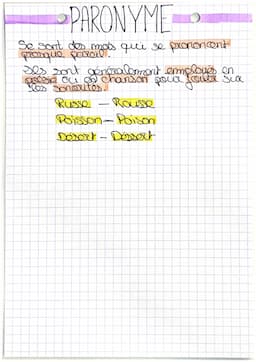 PARONYME
Se sont des mots qui se prononcent
presque pareil.
Ses sont généralement employés en
poésie ou en chanson pour jouer sur
les sonorités.
Russe - Rousse
Poisson - Poison
Désert - Dessert